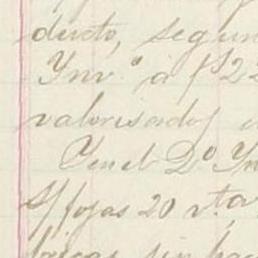 ducto, segun
Ynv.º a f 22
valorisados
Yten el Dº Yn
S/ fojas 20 v.ta